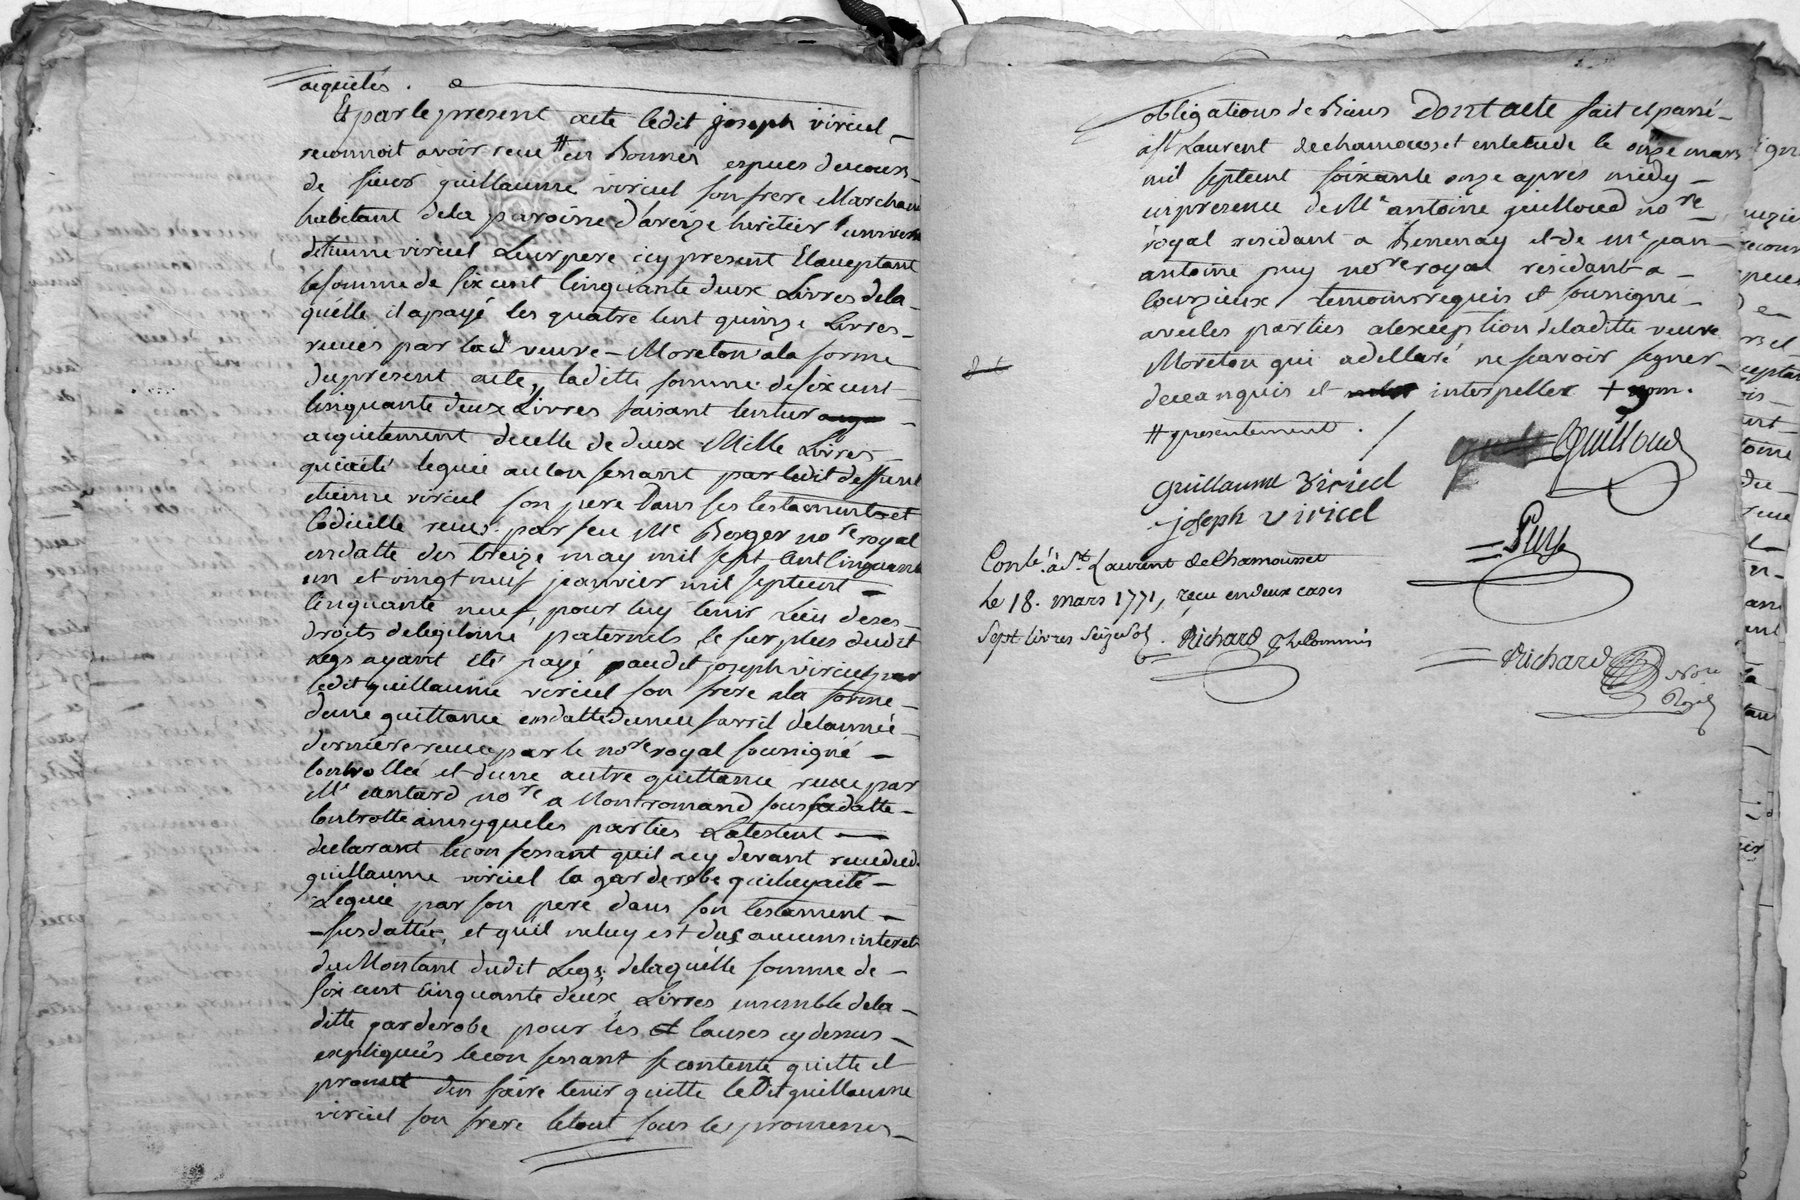 acquités.
Et par le present acte ledit joseph viricel
reconnoit avoir receu # en Bonnes especes de cours
de sieur guillaume viricel son frere Marchand
habitant de la paroisse d'aveize heritier universel
d'etienne viricel Leur pere icy present Et acceptant
la somme de six cent Cinquante deux Livres de la
quelle il a payé les quatre cent quinze Livres
receues par lad. veuve Moreton a la forme
du present acte, laditte somme de six cent
cinquante deux Livres faisant l'entier
acquittement de celle de deux Mille Livres
qui a été leguée au confessant par ledit deffunt
etienne viricel son pere dans ses testament et
codicille receus par feu Me Berger nore royal
en datte des treize may mil sept cent cinquante
un et vingt neuf janvier mil sept cent
cinquante neuf pour luy tenir Lieu de ses
droits de legitime paternels, le surplus dudit
Legs ayant été payé audit joseph viricel par
ledit guillaume viricel son frere a la forme
d'une quittance en datte du neuf avril de l'année
derniere receue par le nore royal soussigné
controllée et d'une autre quittance receue par
Me nore a Montromand sous sa datte
controllé ainsy que les parties L'attestent
declarant le confessant qu'il a cy devant receu dud.
guillaume viricel la garderobe qui luy a été
Leguée par son pere dans son testament
susdatté, et qu'il ne luy est dus aucuns interets
du Montant dudit Legs, de laquelle somme de
six cent cinquante deux Livres ensemble de la
ditte garderobe pour les causes cy dessus
expliquées le confessant se contente quitte et
promet d'en faire tenir quitte le Dit guillaume
viricel son frere le tout sous les promesses
obligations de Biens Dont acte fait et passé
a St Laurent de chamousset en l'etude le onze mars
mil sept cent soixante onze apres midy
en presence de Me antoine guilloud nore
royal residant a Bessenay et de me jean
antoine puy nore royal residant a
Courzieux temoins requis et soussignés
avec les parties a l'exception de la ditte veuve
Moreton qui a declaré ne scavoir signer
de ce enquis et interpellés +
# presentement.
Guilloud
guillaume Viricel
joseph viricel
Puy
Conlé. à St. Laurent de Chamousset
Le 18. mars 1771, reçu en deux cases
Sept livres Seize sols. Richard
Richard Nore
Royal